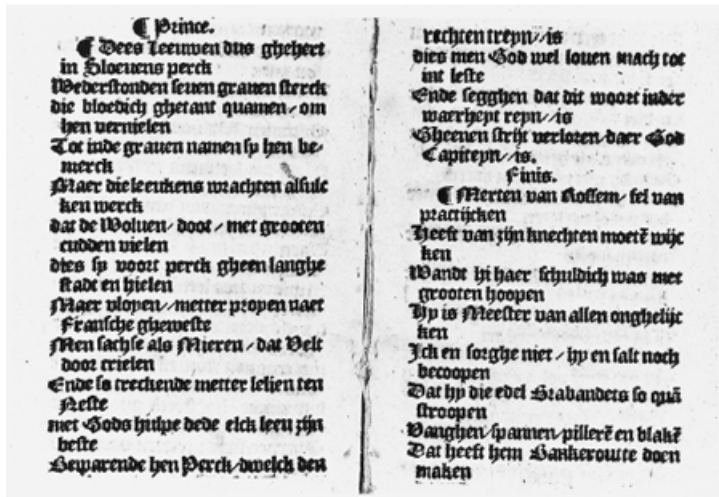 ¶ Prince.
¶ Dees Leeuwen dus ghehert
in Sloevens perck
Wederstonden seven graven sterck
die bloedich ghetant quamen / om
hen vernielen
Tot inde graven namen sy hen be-
merck
Maer die leeukens wrachten alsulc
ken werck
dat de Wolven / doot / met grooten
cudden vielen
dies sy voort perck gheen langhe
stadt en hielen
Maer vloyen / metter proyen naet
Fransche gheweste
Men sachse als Mieren / dat Velt
door crielen
Ende so treckende metter lelien ten
Neste
met Gods hulpe dede elck leeu zijn
beste
Bewarende hen Perck / dwelck den
rechten treyn / is
dies men God wel loven mach tot
int leste
Ende segghen dat dit woort inder
waerheyt reyn / is
Gheenen strijt verloren / daer God
Capiteyn / is.
Finis.
¶ Merten van Rossem / fel van
practijcken
Heeft van zijn knechten moetē wijc
ken
Wandt hi haer schuldich was met
grooten hoopen
Hy is Meester van allen onghelijc
ken
Ick en sorghe niet / hy en salt noch
becoopen
Dat hy die edel Brabanders so quā
stroopen
Vanghen / spannen / pillerē en blakē
Dat heeft hem Bankeroutte doen
maken